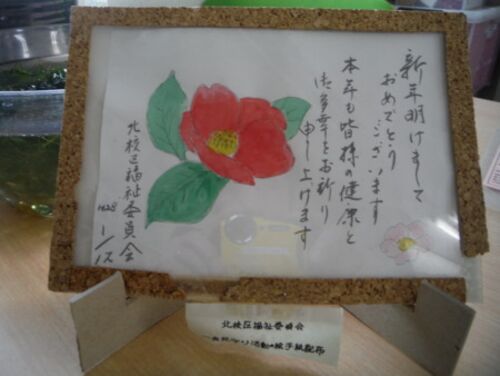 新年明けまして
おめでとう
ございます
本年も皆様の健康と
御多幸をお祈り
申し上げます
北校区福祉委員会
H28
1/15
北校区福祉委員会
絵手紙配布